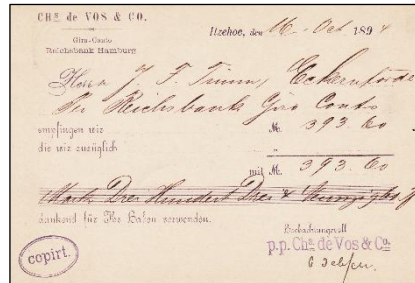 CHs. de VOS & CO.
Giro-Conto
Reichsbank Hamburg
Itzehoe, den 16. Oct. 1894
Herrn J. F. Timm, Eckernförde
Per Reichsbank Giro Conto
empfingen wir M. 393.60
die wir anzüglich
mit M. 393.60
Mark Drei Hundert Drei & Neunzig
dankend für Ihr Haben verwenden.
Hochachtungsvoll
p.p. Chs. de Vos & Co.
copirt.